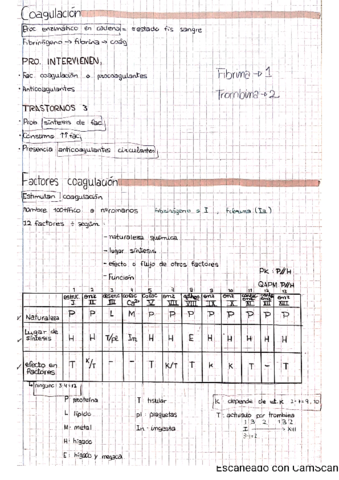 Coagulación
Proc enzimático en cadena → estado fis sangre
Fibrinógeno → fibrina → coag
PRO. INTERVIENEN,
· Fac coagulación o procoagulantes
· Anticoagulantes
Fibrina → 1
Trombina → 2
TRASTORNOS 3
· Prob síntesis de fac
· Consumo ↑↑ fac
· Presencia anticoagulantes circulantes
Factores coagulación
Estimulan coagulación
nombre científico o números romanos Fibrinógeno = I , Fibrina (Ia)
12 factores ÷ según
- naturaleza química
- lugar síntesis
- efecto o flujo de otros factores
- Función
PK : P/H
QAPM P/H
1 2 3 4 5 7 8 9 10 11 12 13
I II III Ca²⁺ V VII VIII IX X XI XII XIII
Naturaleza P P L M P P P P P P P P
Lugar de síntesis H H T/pl In H H E H H H H H
efecto en Factores T K/T - - T K/T T K K T - T
Ninguno: 3·4·12
P proteína T tisular K depende de vit. K 2·7·9·10
L lípido pl plaquetas T: activado por trombina
M· metal In· ingesta
H· hígado
E: hígado y
Escaneado con CamScan